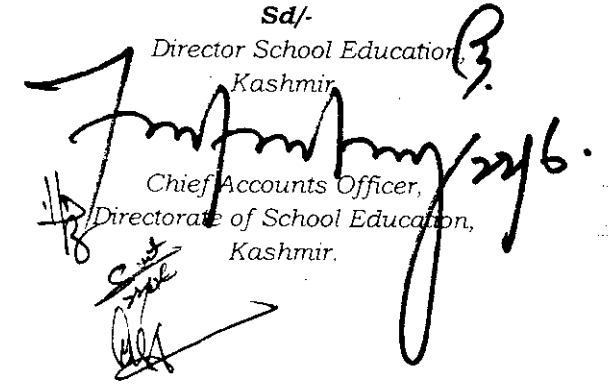 Sd/-
Director School Education,
Kashmir
22/6.
Chief Accounts Officer,
Directorate of School Education,
Kashmir.